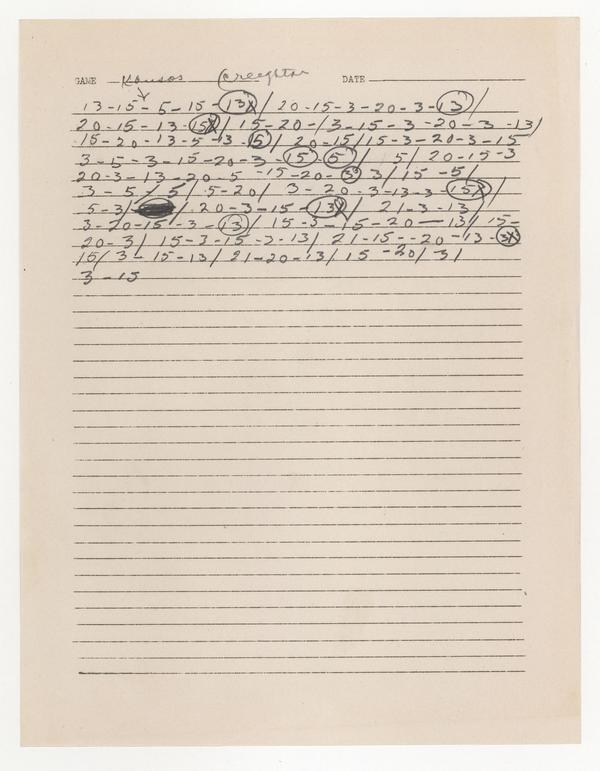 GAME Kansas Creighton DATE
13-15-5-15-13X / 20-15-3-20-3-13 /
20-15-13-15X / 15-20-/3-15-3-20-3-13/
15-20-13-5-13-15 / 20-15/15-3-20-3-15
3-5-3-15-20-3-15-5 / 5/ 20-15-3
20-3-13-20-5-15-20-3 3/15-5/
3-5/5/5-20/ 3-20-3-13-3-15X/
5-3/ / 20-3-15-13X/ 21-3-13/
3-20-15-3-13/ 15-3-15-20-13/ 15-
20-3/ 15-3-15-3-13/ 21-15--20-13-3X
15/3-15-13/21-20-13/15-20/3/
3-15